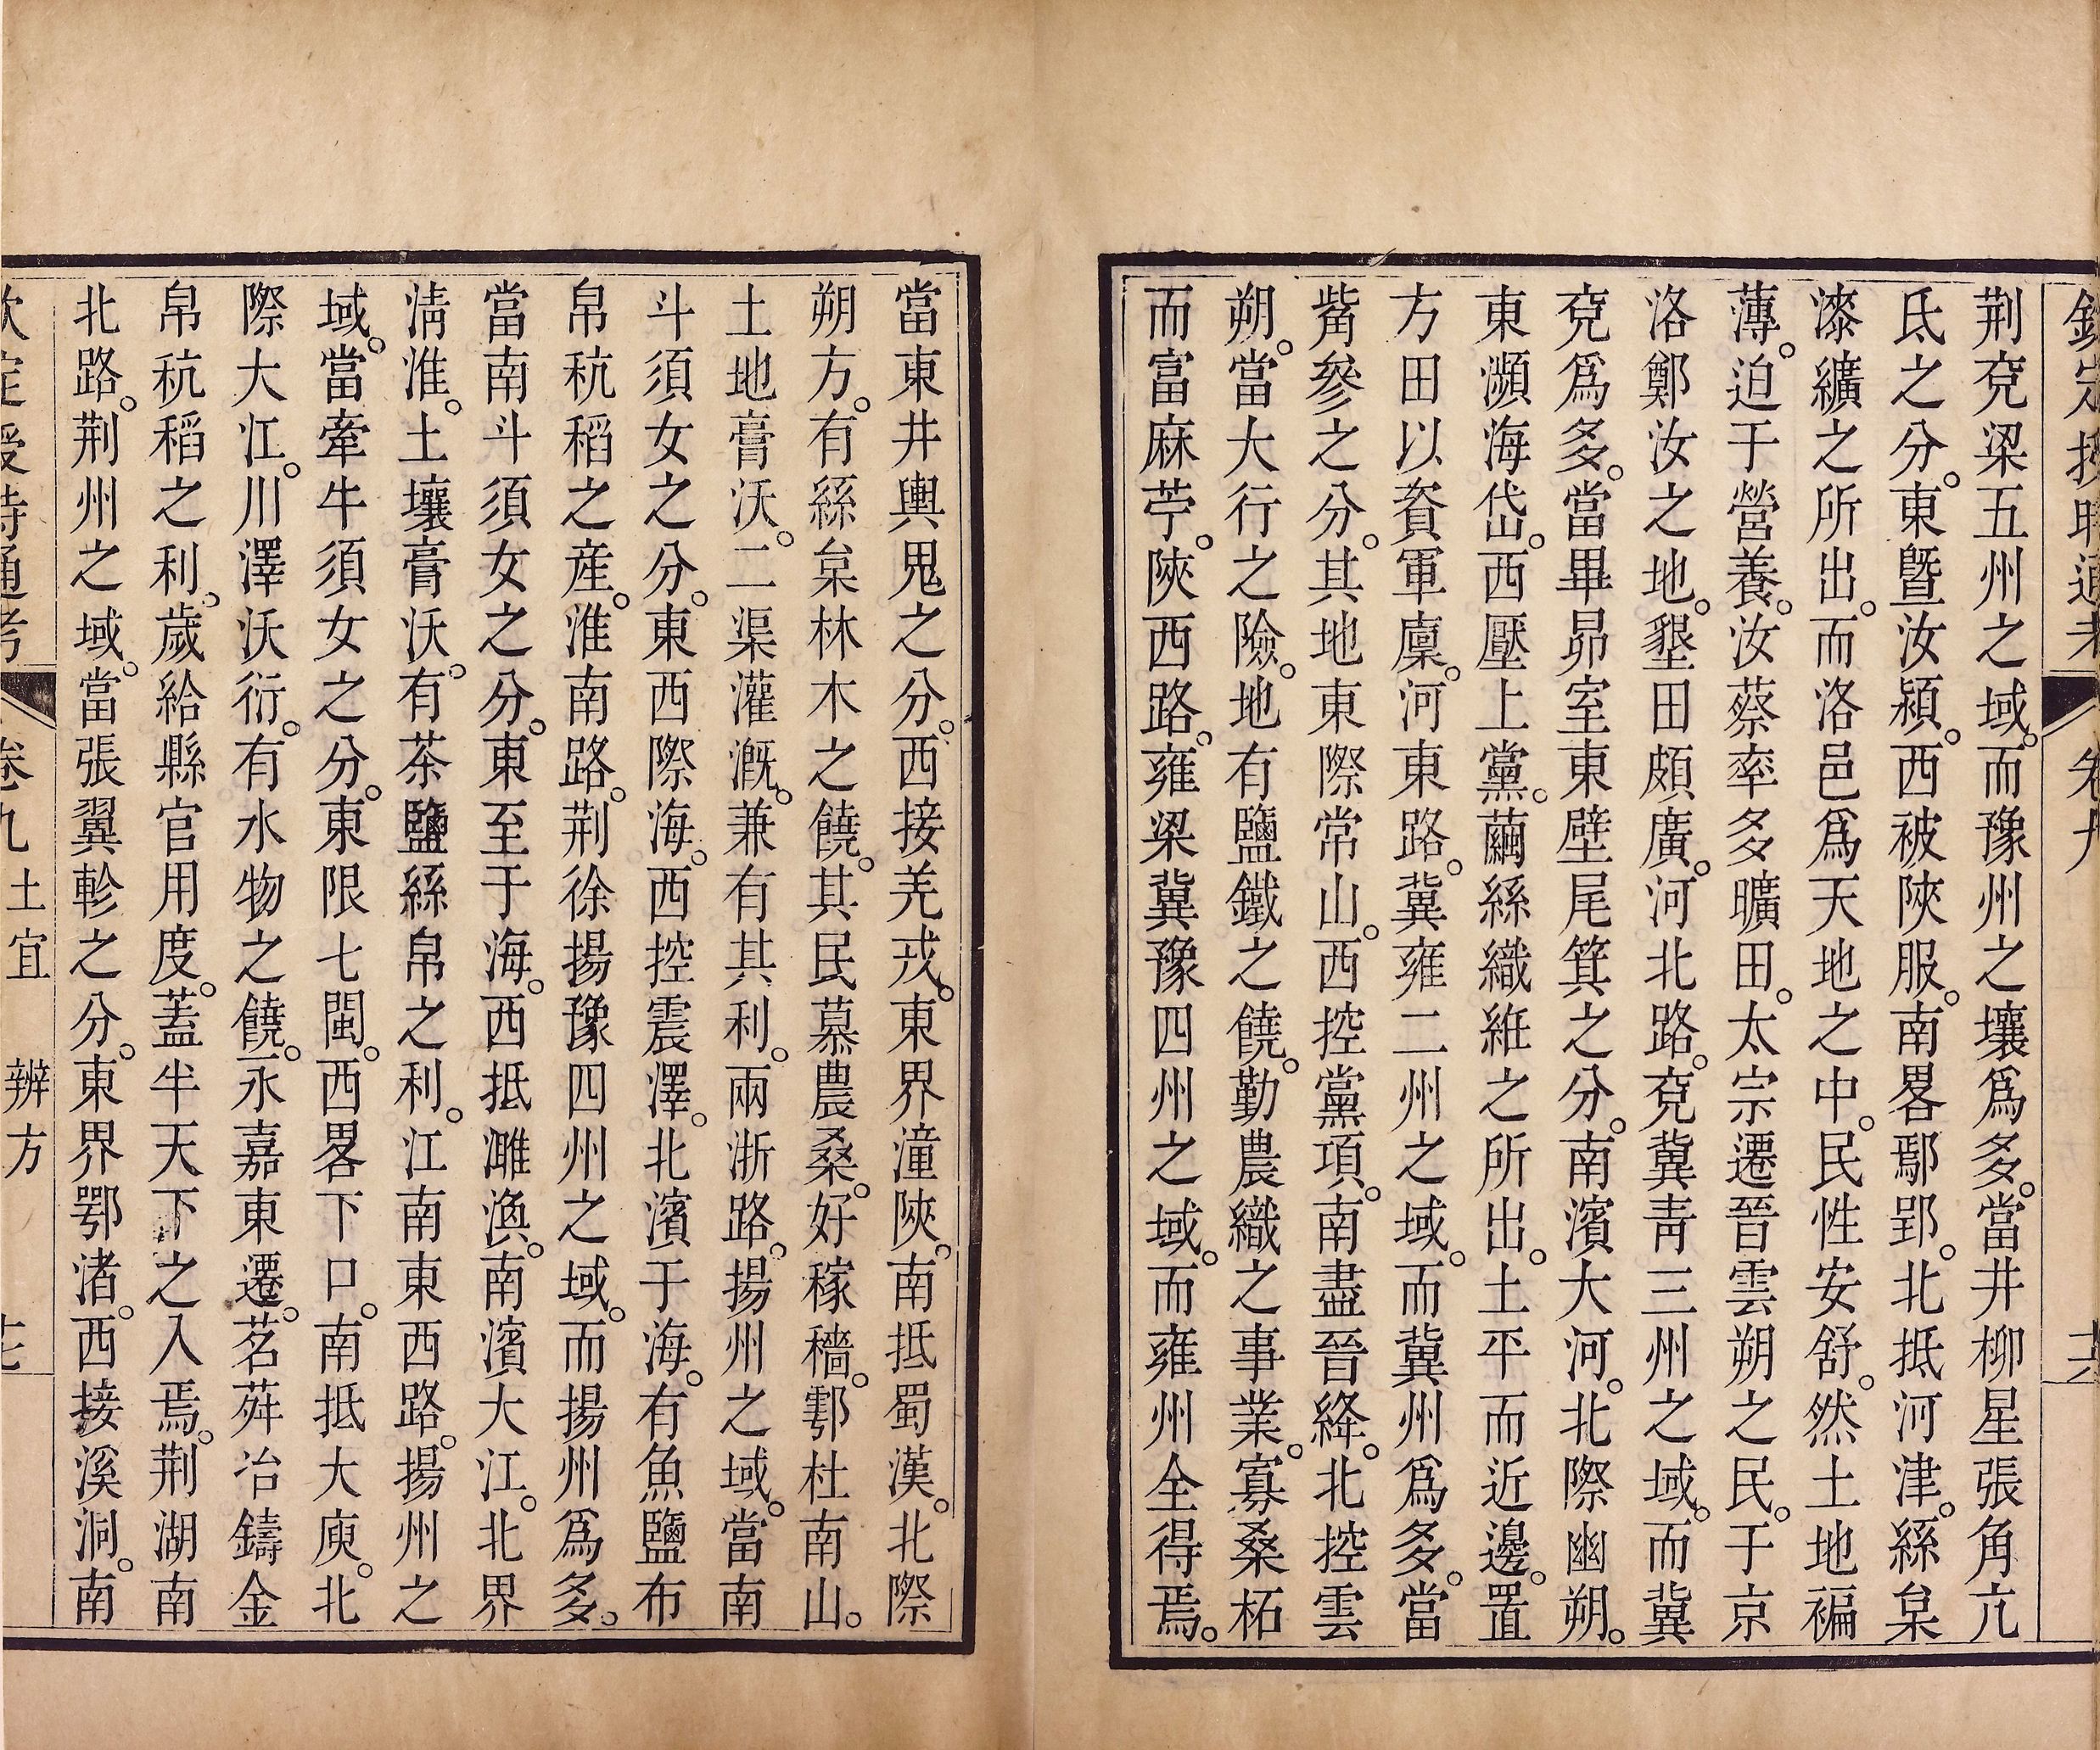 欽定授時通考
卷九
荆兗梁五州之域。而豫州之壤爲多。當井柳星張角亢
氐之分。東曁汝潁。西被陝服。南畧鄢郢。北抵河津。絲枲
漆纊之所出。而洛邑爲天地之中。民性安舒。然土地褊
薄。迫于營養。汝蔡率多曠田。太宗遷晉雲朔之民。于京
洛鄭汝之地。墾田頗廣。河北路。兗冀靑三州之域。而冀
兗爲多。當畢昴室東壁尾箕之分。南濱大河。北際幽朔。
東瀕海岱。西壓上黨。繭絲織紝之所出。土平而近邊。置
方田以資軍廩。河東路。冀雍二州之域。而冀州爲多。當
觜參之分。其地東際常山。西控黨項。南盡晉絳。北控雲
朔。當大行之險。地有鹽鐵之饒。勤農織之事業。寡桑柘
而富麻苧。陝西路。雍梁冀豫四州之域。而雍州全得焉。
當東井輿鬼之分。西接羌戎。東界潼陝。南抵蜀漢。北際
朔方。有絲枲林木之饒。其民慕農桑。好稼穡。鄠杜南山。
土地膏沃。二渠灌漑。兼有其利。兩浙路。揚州之域。當南
斗須女之分。東西際海。西控震澤。北濱于海。有魚鹽布
帛秔稻之產。淮南路。荆徐揚豫四州之域。而揚州爲多。
當南斗須女之分。東至于海。西抵濉渙。南濱大江。北界
淸淮。土壤膏沃。有茶鹽絲帛之利。江南東西路。揚州之
域。當牽牛須女之分。東限七閩。西畧下口。南抵大庾。北
際大江。川澤沃衍。有水物之饒。永嘉東遷。茗荈冶鑄金
帛秔稻之利。歲給縣官用度。蓋半天下之入焉。荆湖南
北路。荆州之域。當張翼軫之分。東界鄂渚。西接溪洞。南
欽定授時通考
卷九 土宜 辨方